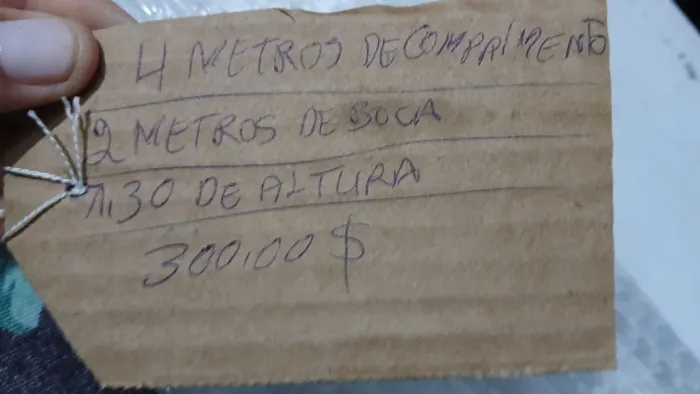 4 METROS DE COMPRIMENTO
2 METROS DE BOCA
1,30 DE ALTURA
300,00 $